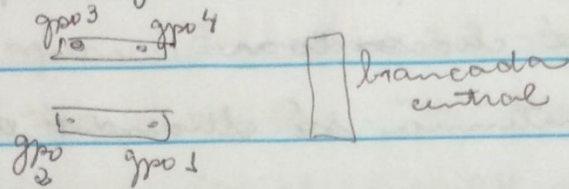 gpo 3 gpo 4
brancada
central
gpo
2
gpo 1